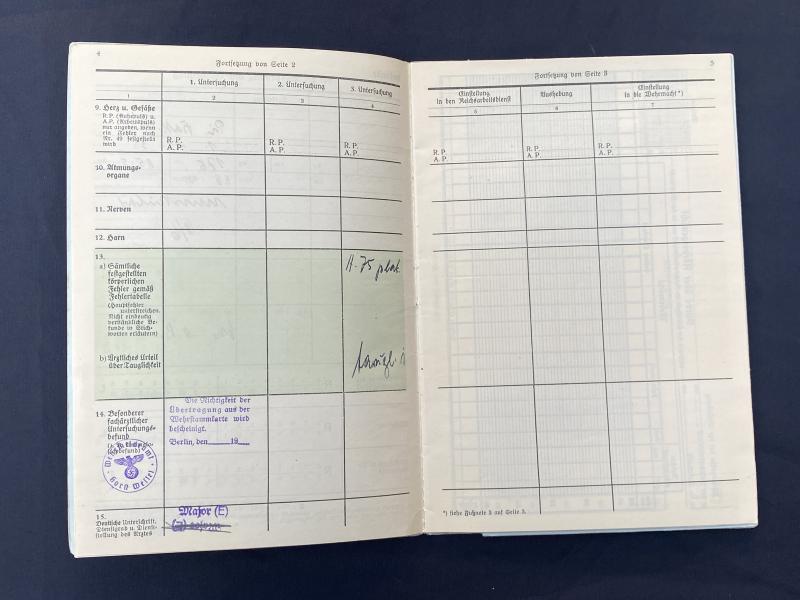 4
Fortsetzung von Seite 2
1. Untersuchung
2. Untersuchung
3. Untersuchung
1
2
3
4
9. Herz u. Gefäße
R. P. (Ruhepuls) u.
A. P. (Arbeitspuls)
nur angeben, wenn
ein Fehler nach
Nr. 49 festgestellt
wird
R. P.
A. P.
R. P.
A. P.
R. P.
A. P.
10. Atmungs-
organe
11. Nerven
12. Harn
13.
a) Sämtliche
festgestellten
körperlichen
Fehler gemäß
Fehlertabelle
(Hauptfehler
unterstreichen.
Nicht eindeutig
verständliche Be-
funde in Stich-
worten erläutern)
b) Ärztliches Urteil
über Tauglichkeit
14. Besonderer
fachärztlicher
Untersuchungs-
befund
Die Richtigkeit der
Übertragung aus der
Wehrstammkarte wird
bescheinigt.
Berlin, den 19
Horst Wessel
15.
Deutliche Unterschrift,
Dienstgrad u. Dienst-
stellung des Arztes
Major (E)
5
Fortsetzung von Seite 3
Einstellung
in den Reichsarbeitsdienst
Aushebung
Einstellung
in die Wehrmacht*)
5
6
7
R. P.
A. P.
R. P.
A. P.
R. P.
A. P.
*) siehe Fußnote 2 auf Seite 3.